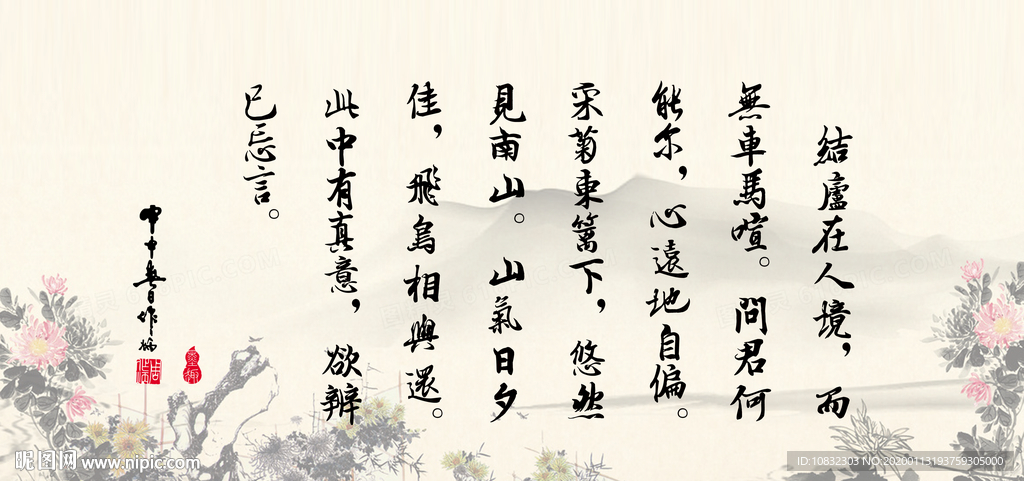 結廬在人境，而
無車馬喧。問君何
能尔，心遠地自偏。
采菊東籬下，悠然
見南山。山氣日夕
佳，飛鳥相與還。
此中有真意，欲辨
已忘言。
昵图网 www.nipic.com
ID:10832303 NO:20200113193759305000